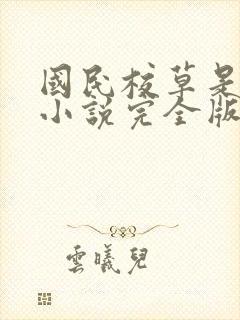 國民校草是
小說完全版
雲曦兒